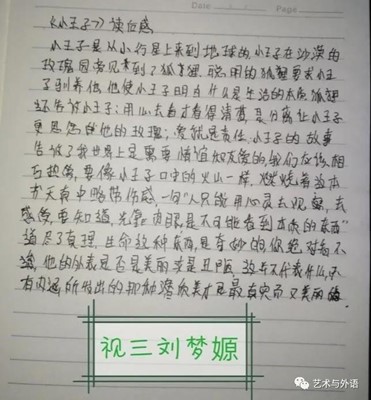 Date Page
《小王子》读后感
小王子是从小行星上来到地球的,小王子在沙漠的
玫瑰园旁见到了狐狸,聪明的狐狸要求小王
子驯养他,他使小王子明白什么是生活的本质,狐狸
还告诉小王子:用心去看才看得清楚,是分离让小王子
更思念他的玫瑰;爱就是责任.小王子的故事
告诉了我世界上是需要情谊和友爱的,我们应该相
互热爱,要像小王子口中的火山一样,燃烧着这本
书天真中略带伤感,一句"人只能用心灵去观察,去
感觉,要知道,光靠肉眼是不可能看到本质的东西"
道尽了真理,生命这种东西,是奇妙的你绝对看不
他的外表是否是美丽或是丑陋,这并不代表什么,只
有内涵所付出的那种潜质美才是最真实而又美丽的
视三刘梦嫄
艺术与外语